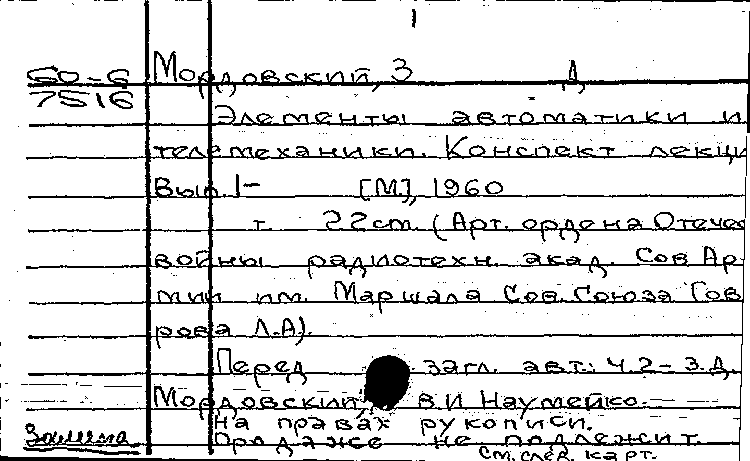 1
60-6 Мордовский, З Д.
7516
Элементы автоматики и
телемеханики. Конспект лекци
Вып. 1- [М], 1960
т. 22см. (Арт. ордена Отечес
войны радиотехн. акад. Сов Ар
мии им. Маршала Сов. Союза Гов
рова Л.А).
Перед загл. авт.: Ч.2-З.Д.
Мордовский, В.И Наумейко.
На правах рукописи.
Замена Продаже не подлежит.
См. след. карт.